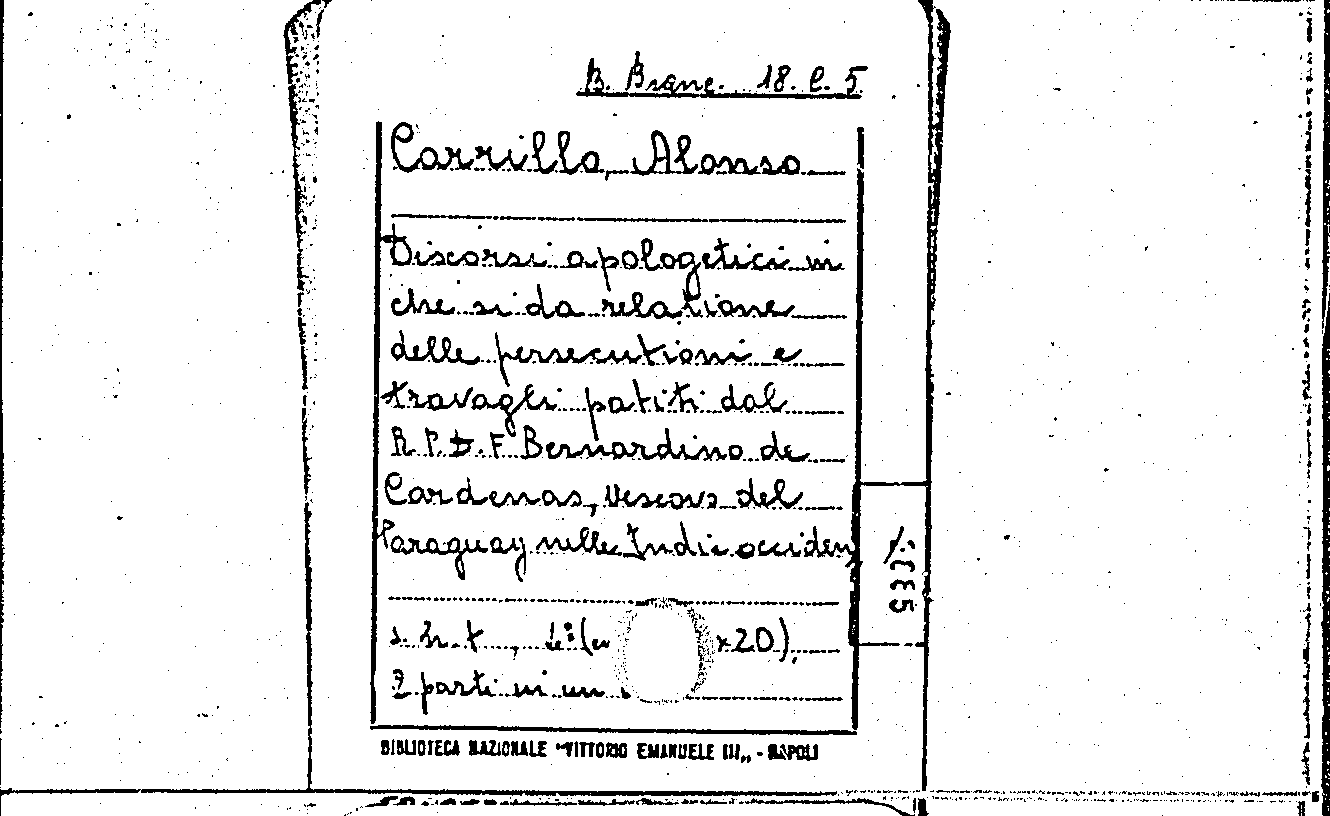 B. Branc. 18. C. 5
Carrillo, Alonso
Discorsi apologetici in
che si da relatione
delle persecutioni e
travagli patiti dal
R. P. D. F. Bernardino de
Cardenas, Vescovo del
Paraguay nelle Indie occiden,
s. n. t., 4° (cm x20),
2 parti in un
BIBLIOTECA NAZIONALE "VITTORIO EMANUELE III„ - NAPOLI